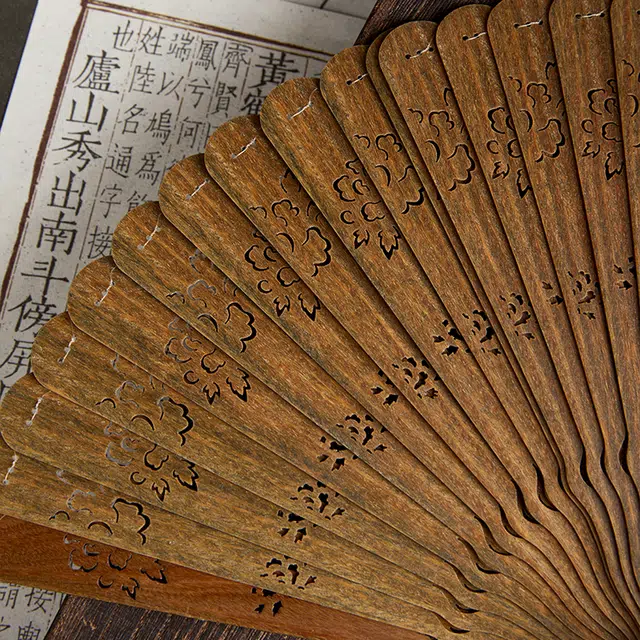 黃
齊賢
鳳兮何
端以鳩為
姓陸名通字接
也
廬山秀出南斗傍屏